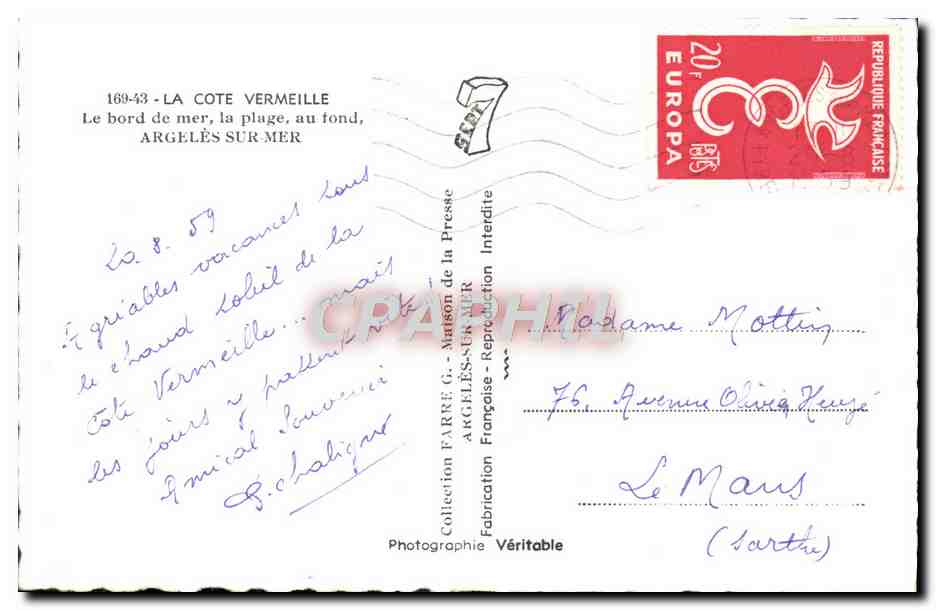 169-43 - LA COTE VERMEILLE
Le bord de mer, la plage, au fond,
ARGELÈS SUR-MER
8. 59
Agréables vacances sous
le chaud soleil de la
Côte Vermeille... mais
les jours y passent vite!
Amical Souvenir
Collection FARRE G. - Maison de la Presse
ARGELÈS-SUR-MER
Fabrication Française - Reproduction Interdite
Photographie Véritable
7
SEPT
REPUBLIQUE FRANÇAISE
20F
EUROPA
POSTES
Madame Mottin
76, Avenue Olivier Heuzé
Le Mans
(Sarthe)
CPAPHIL